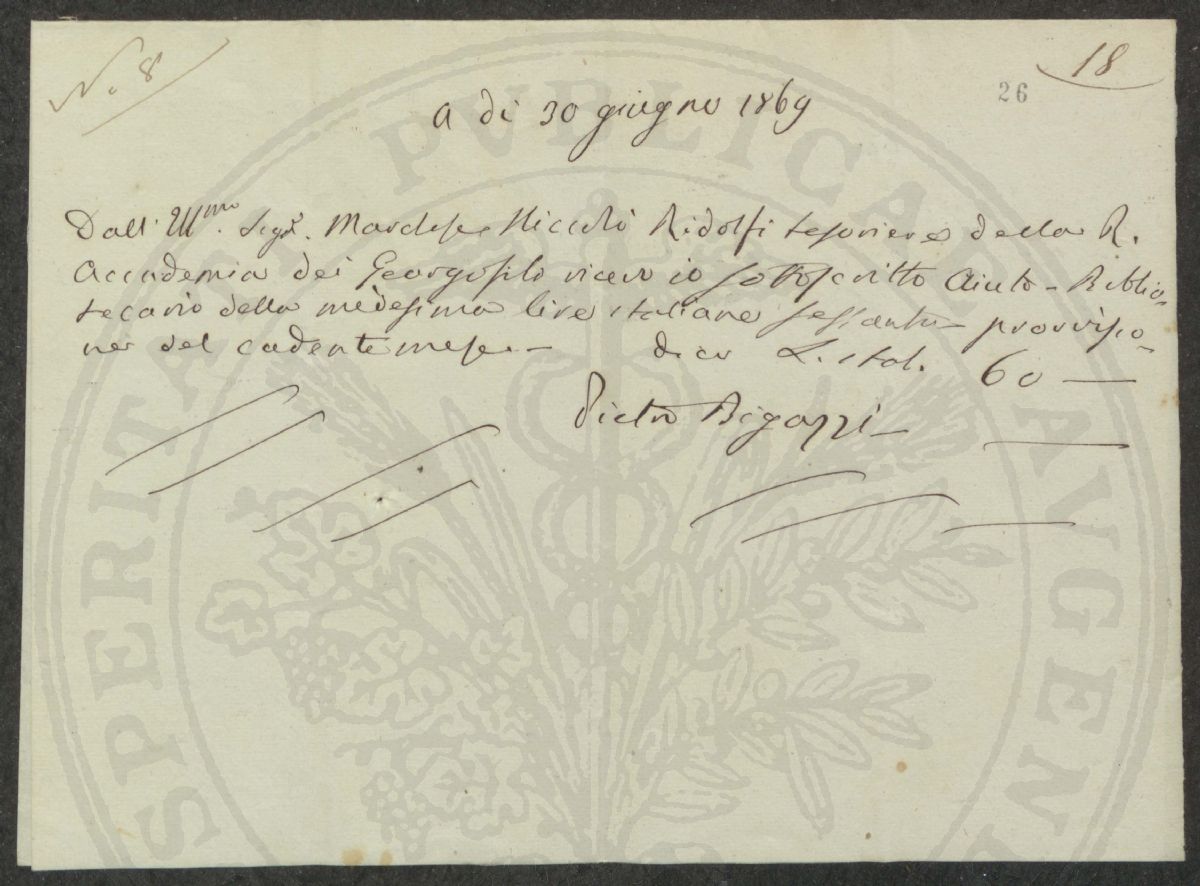 N. 8
18
26
a dì 30 giugno 1869
Dall' Ill.mo Sigr. Marchese Niccolò Ridolfi tesoriere della R.
Accademia dei Georgofili ricevo io sottoscritto Aiuto-Biblio-
tecario della medesima lire italiane sessanta provvisio-
ne del cadente mese — dico L. ital. 60 —
Pietro Bigazzi
PVBLICAE
SPERITATI
AVGEN